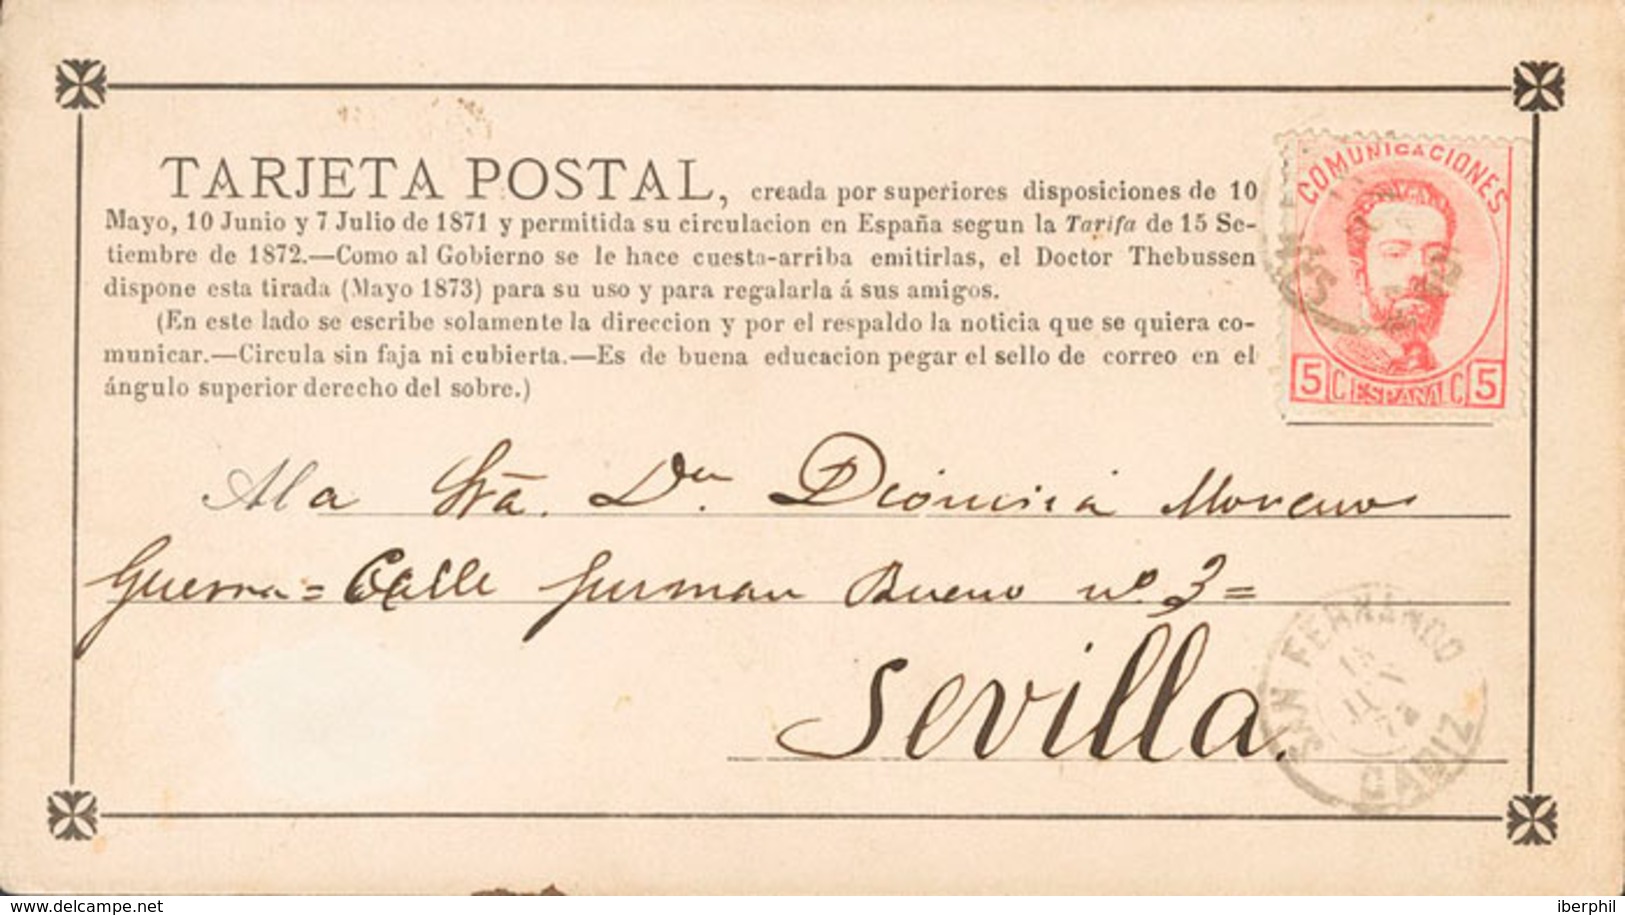 TARJETA POSTAL, creada por superiores disposiciones de 10
Mayo, 10 Junio y 7 Julio de 1871 y permitida su circulacion en España segun la Tarifa de 15 Se-
tiembre de 1872.—Como al Gobierno se le hace cuesta-arriba emitirlas, el Doctor Thebussen
dispone esta tirada (Mayo 1873) para su uso y para regalarla á sus amigos.
(En este lado se escribe solamente la direccion y por el respaldo la noticia que se quiera co-
municar.—Circula sin faja ni cubierta.—Es de buena educacion pegar el sello de correo en el
ángulo superior derecho del sobre.)
COMUNICACIONES
5 C. ESPAÑA C. 5
A la Sra. Dn. Dionisia Moreno
Guerra = Calle Gusman Bueno nº 3 =
Sevilla.
SAN FERNANDO
JUN
CADIZ
www.delcampe.net
iberphil